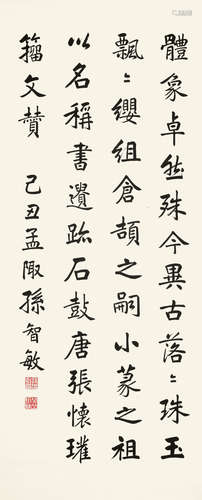 體象卓然殊今異古落落〻珠玉
飄〻纓組倉頡之嗣小篆之祖
以名稱書遺跡石鼓唐張懷瓘
籀文贊 己丑孟陬孫智敏